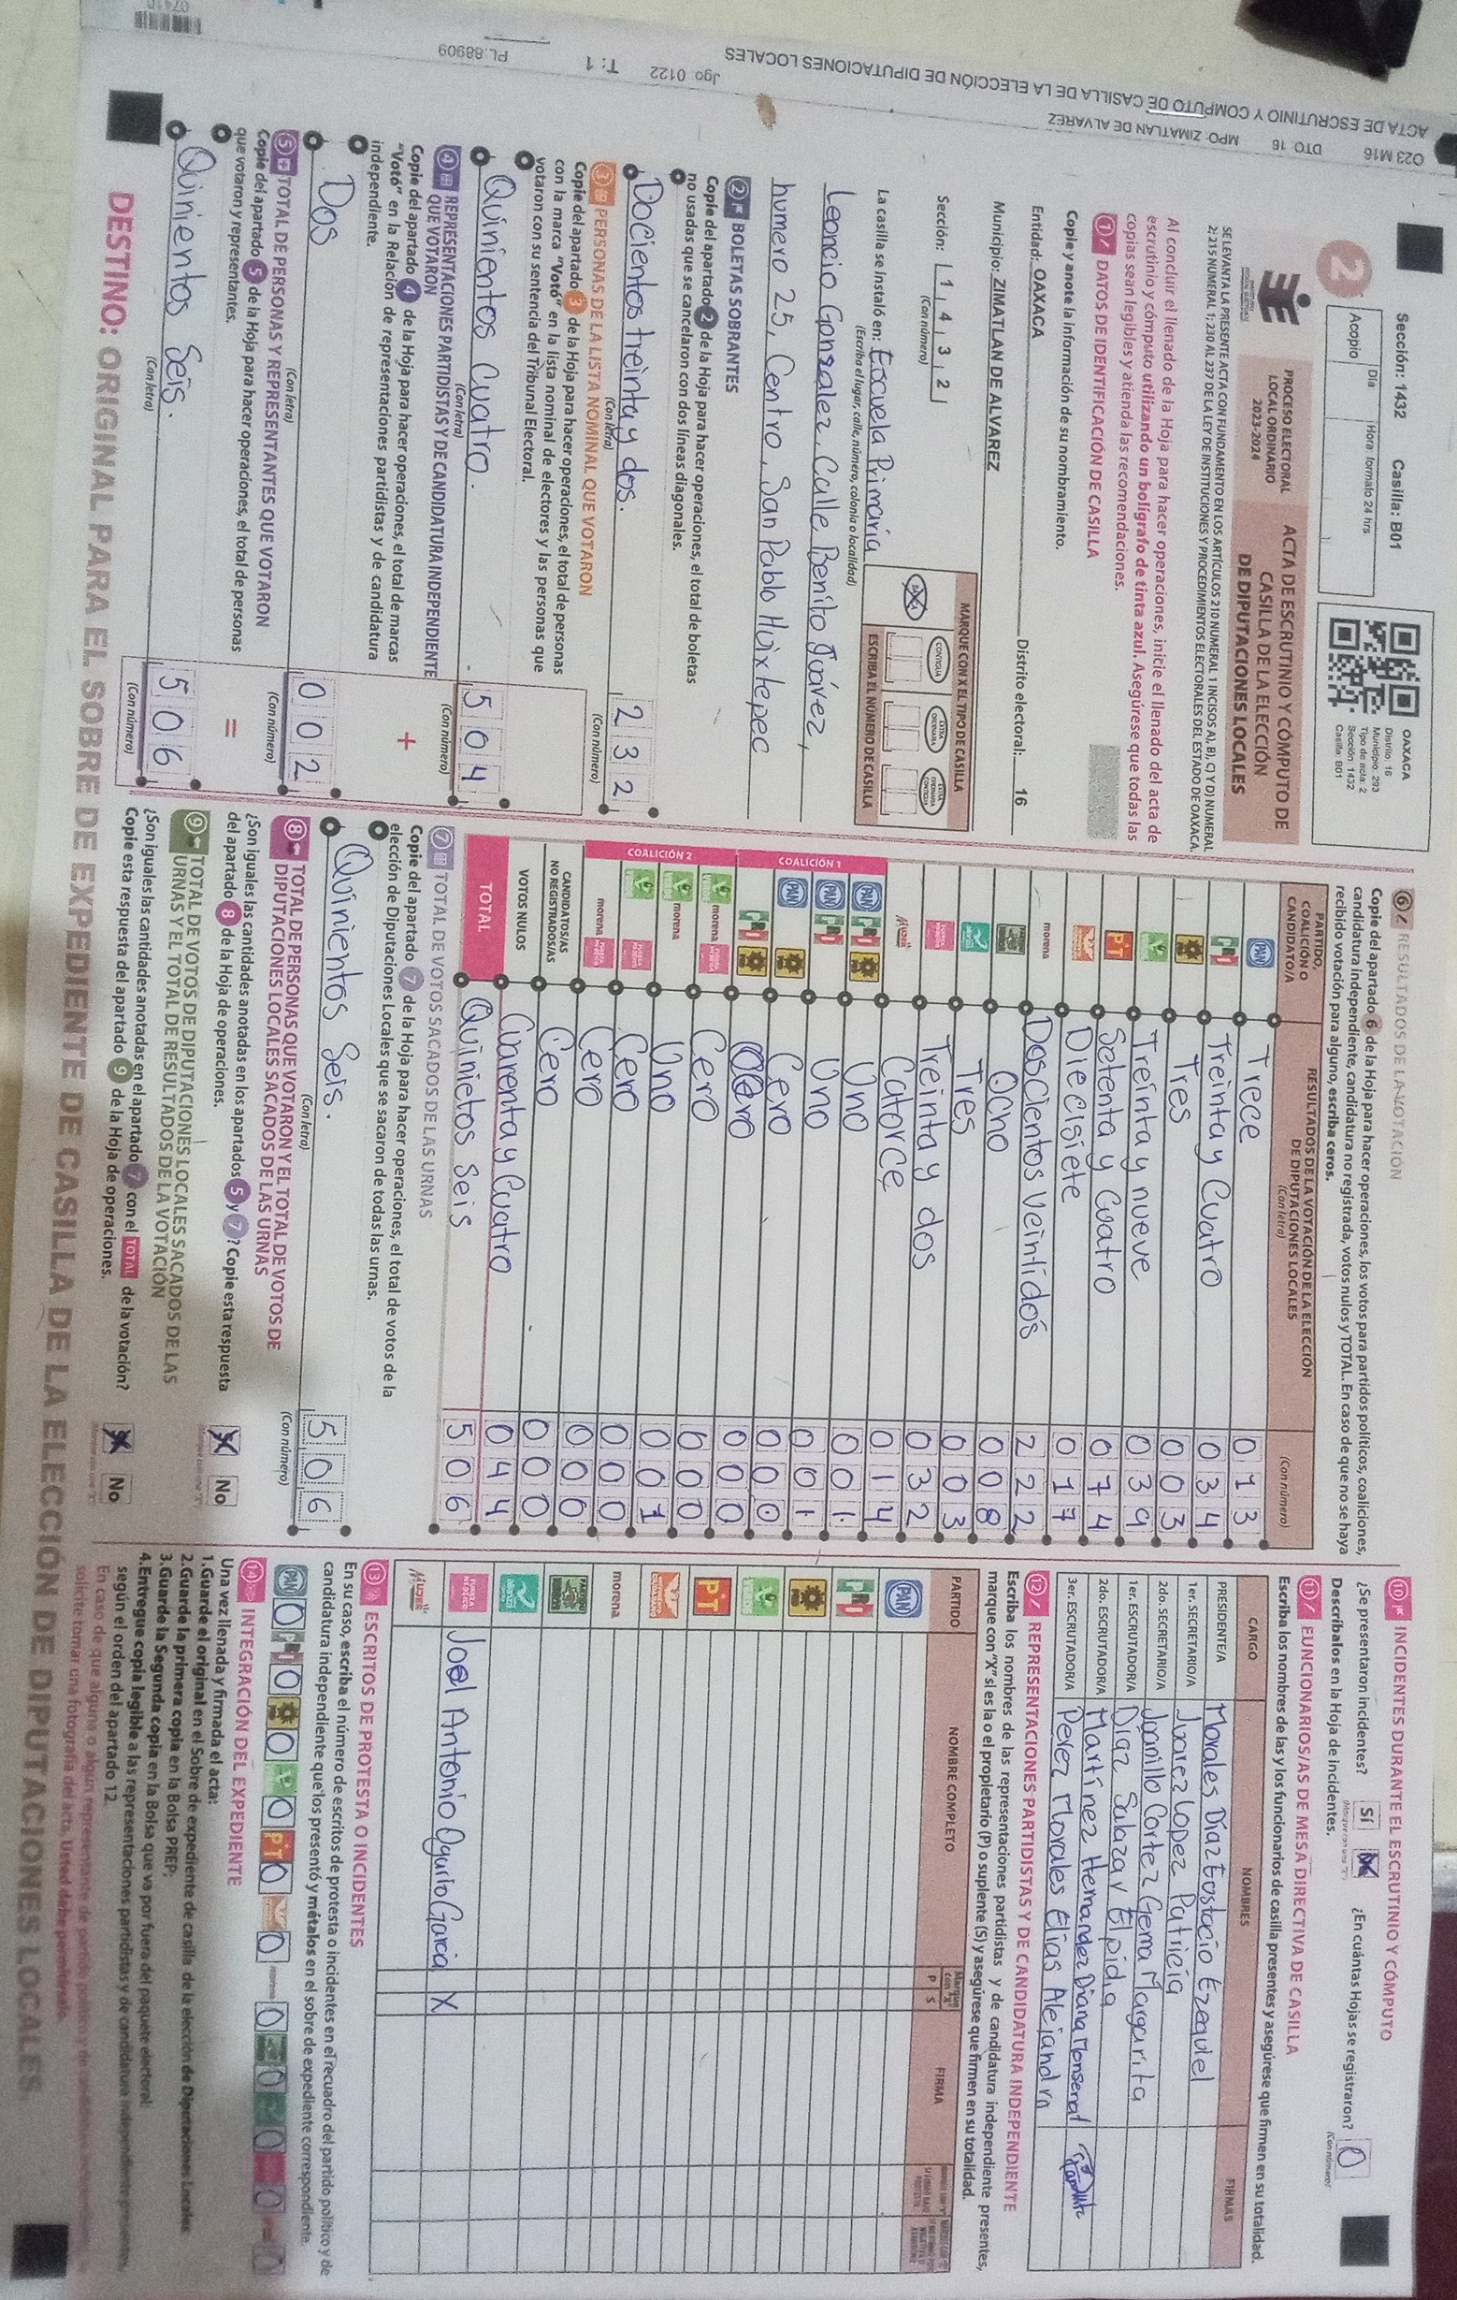 Sección: 1432 Casilla: B01
Día Hora: formato 24 hrs
Acopio
2
OAXACA
Distrito: 16
Municipio: 293
Tipo de acta: 2
Sección: 1432
Casilla: B01
PROCESO ELECTORAL
LOCAL ORDINARIO
2023-2024
ACTA DE ESCRUTINIO Y CÓMPUTO DE
CASILLA DE LA ELECCIÓN
DE DIPUTACIONES LOCALES
SE LEVANTA LA PRESENTE ACTA CON FUNDAMENTO EN LOS ARTÍCULOS 210 NUMERAL 1 INCISOS A), B), C) Y D) NUMERAL
2; 215 NUMERAL 1; 230 AL 237 DE LA LEY DE INSTITUCIONES Y PROCEDIMIENTOS ELECTORALES DEL ESTADO DE OAXACA.
Al concluir el llenado de la Hoja para hacer operaciones, inicie el llenado del acta de
escrutinio y cómputo utilizando un bolígrafo de tinta azul. Asegúrese que todas las
copias sean legibles y atienda las recomendaciones.
1 DATOS DE IDENTIFICACIÓN DE CASILLA
Copie y anote la información de su nombramiento.
Entidad: OAXACA Distrito electoral: 16
Municipio: ZIMATLAN DE ALVAREZ
Sección: 1 4 3 2
(Con número)
MARQUE CON X EL TIPO DE CASILLA
CONTIGUA
ESCRIBA EL NÚMERO DE CASILLA
La casilla se instaló en: Escuela Primaria
(Escriba el lugar, calle, número, colonia o localidad)
Leoncio Gonzalez, Calle Benito Juárez,
numero 25, Centro, San Pablo Huixtepec
2 BOLETAS SOBRANTES
Copie del apartado 2 de la Hoja para hacer operaciones, el total de boletas
no usadas que se cancelaron con dos líneas diagonales.
Docientos treinta y dos. 2 3 2
(Con letra) (Con número)
3 PERSONAS DE LA LISTA NOMINAL QUE VOTARON
Copie del apartado 3 de la Hoja para hacer operaciones, el total de personas
con la marca "Votó" en la lista nominal de electores y las personas que
votaron con su sentencia del Tribunal Electoral.
Quinientos Cuatro. 5 0 4
(Con letra) (Con número)
4 REPRESENTACIONES PARTIDISTAS Y DE CANDIDATURA INDEPENDIENTE
QUE VOTARON
Copie del apartado 4 de la Hoja para hacer operaciones, el total de marcas
"Votó" en la Relación de representaciones partidistas y de candidatura
independiente.
+
Dos 0 0 2
(Con letra) (Con número)
5 TOTAL DE PERSONAS Y REPRESENTANTES QUE VOTARON
Copie del apartado 5 de la Hoja para hacer operaciones, el total de personas
que votaron y representantes.
=
Quinientos Seis. 5 0 6
(Con letra) (Con número)
6 RESULTADOS DE LA VOTACIÓN
Copie del apartado 6 de la Hoja para hacer operaciones, los votos para partidos políticos, coaliciones,
candidatura independiente, candidatura no registrada, votos nulos y TOTAL. En caso de que no se haya
recibido votación para alguno, escriba ceros.
PARTIDO,
COALICIÓN O
CANDIDATO/A
RESULTADOS DE LA VOTACIÓN DE LA ELECCIÓN
DE DIPUTACIONES LOCALES
(Con letra)
(Con número)
PAN Trece 0 1 3
PRI Treinta y Cuatro 0 3 4
Tres 0 0 3
Treinta y nueve 0 3 9
PT Setenta y Cuatro 0 7 4
Diecisiete 0 1 7
morena Doscientos Veintidós 2 2 2
Ocho 0 0 8
Tres 0 0 3
Treinta y dos 0 3 2
MUJER Catorce 0 1 4
COALICIÓN 1
PAN PRI Uno 0 0 1
PAN PRI Uno 0 0 1
PAN Cero 0 0 0
PRI Cero 0 0 0
COALICIÓN 2
morena Cero 0 0 0
morena Uno 0 0 1
Cero 0 0 0
morena Cero 0 0 0
CANDIDATOS/AS
NO REGISTRADOS/AS Cero 0 0 0
VOTOS NULOS Cuarenta y Cuatro 0 4 4
TOTAL Quinietos Seis 5 0 6
7 TOTAL DE VOTOS SACADOS DE LAS URNAS
Copie del apartado 7 de la Hoja para hacer operaciones, el total de votos de la
elección de Diputaciones Locales que se sacaron de todas las urnas.
Quinientos Seis. 5 0 6
(Con letra) (Con número)
8 TOTAL DE PERSONAS QUE VOTARON Y EL TOTAL DE VOTOS DE
DIPUTACIONES LOCALES SACADOS DE LAS URNAS
¿Son iguales las cantidades anotadas en los apartados 5 y 7? Copie esta respuesta
del apartado 8 de la Hoja de operaciones.
No
9 TOTAL DE VOTOS DE DIPUTACIONES LOCALES SACADOS DE LAS
URNAS Y EL TOTAL DE RESULTADOS DE LA VOTACIÓN
¿Son iguales las cantidades anotadas en el apartado 7 con el TOTAL de la votación?
Copie esta respuesta del apartado 9 de la Hoja de operaciones.
No
10 INCIDENTES DURANTE EL ESCRUTINIO Y CÓMPUTO
¿Se presentaron incidentes? Sí ¿En cuántas Hojas se registraron? 0
(Con número)
Descríbalos en la Hoja de incidentes.
11 FUNCIONARIOS/AS DE MESA DIRECTIVA DE CASILLA
Escriba los nombres de las y los funcionarios de casilla presentes y asegúrese que firmen en su totalidad.
CARGO NOMBRES FIRMAS
PRESIDENTE/A Morales Díaz Eustacio Ezequiel
1er. SECRETARIO/A Juarez Lopez Patricia
2do. SECRETARIO/A Jarillo Cortez Gema Margarita
1er. ESCRUTADOR/A Diaz Salazar Elpidia
2do. ESCRUTADOR/A Martinez Hernandez Diana Monserat
3er. ESCRUTADOR/A Perez Morales Elias Alejandra
12 REPRESENTACIONES PARTIDISTAS Y DE CANDIDATURA INDEPENDIENTE
Escriba los nombres de las representaciones partidistas y de candidatura independiente presentes,
marque con "X" si es la o el propietario (P) o suplente (S) y asegúrese que firmen en su totalidad.
PARTIDO NOMBRE COMPLETO P S FIRMA
PAN
PRI
PT
morena
Joel Antonio Ogario Garcia X
MUJER
13 ESCRITOS DE PROTESTA O INCIDENTES
En su caso, escriba el número de escritos de protesta o incidentes en el recuadro del partido político y de
candidatura independiente que los presentó y métalos en el sobre de expediente correspondiente.
PAN 0 PRI 0 0 0 PT 0 0 morena 0 0 0 0 0
14 INTEGRACIÓN DEL EXPEDIENTE
Una vez llenada y firmada el acta:
1.Guarde el original en el Sobre de expediente de casilla de la elección de Diputaciones Locales.
2.Guarde la primera copia en la Bolsa PREP;
3.Guarde la Segunda copia en la Bolsa que va por fuera del paquete electoral;
4.Entregue copia legible a las representaciones partidistas y de candidatura independiente presentes,
según el orden del apartado 12.
En caso de que alguna o algún representante de partido político y de candidatura independiente
solicite tomar una fotografía del acta, Usted debe permitírselo.
DESTINO: ORIGINAL PARA EL SOBRE DE EXPEDIENTE DE CASILLA DE LA ELECCIÓN DE DIPUTACIONES LOCALES.
O23 M16 DTO 16 MPO: ZIMATLAN DE ALVAREZ
ACTA DE ESCRUTINIO Y COMPUTO DE CASILLA DE LA ELECCIÓN DE DIPUTACIONES LOCALES
Jgo 0122 T: 1 PL:88909